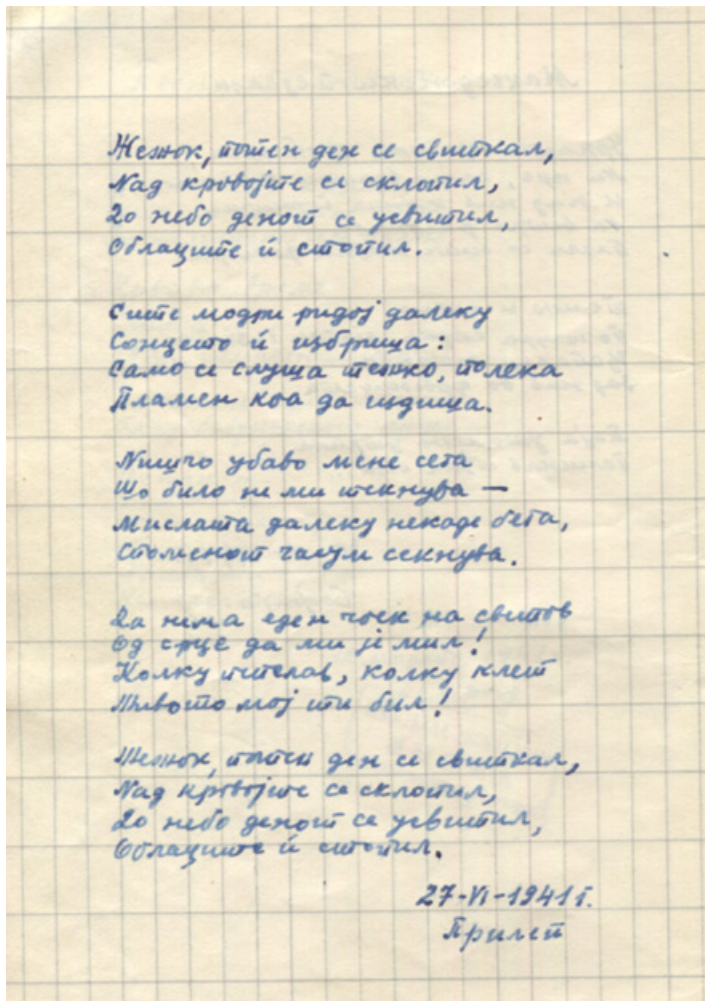 Жежок, потен ден се свиткал,
Над кровојте се склопил,
До небо денот се усвитил,
Облаците й стопил.
Сите модри ридој далеку
Сонцето й избриша:
Само се слуша тешко, полека
Пламен коа да издиша.
Ништо убаво мене сега
Що било не ми текнува —
Мислата далеку некаде бега,
Споменот часум секнува.
Да нема еден чоек на светов
Од срце да ми је мил!
Колку пителав, колку клет
Живото мој ти бил!
Жежок, потен ден се свиткал,
Над кровојте се склопил,
До небо денот се усвитил,
Облаците й стопил.
27-VI-1941 г.
Прилеп